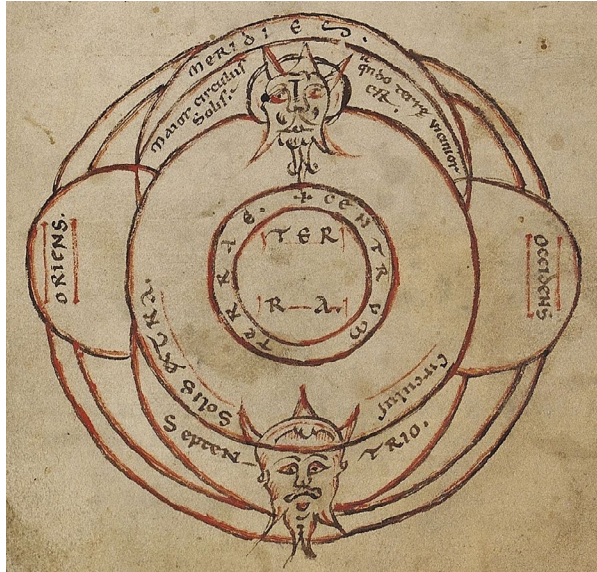 MERIDIES.
Maior circulus
Solis.
terrę vicinior
ORIENS.
OCCIDENS
+ CENTRUM TERRIE.
TER
RA.
Circulus
Solis
Septen-
TRIO.